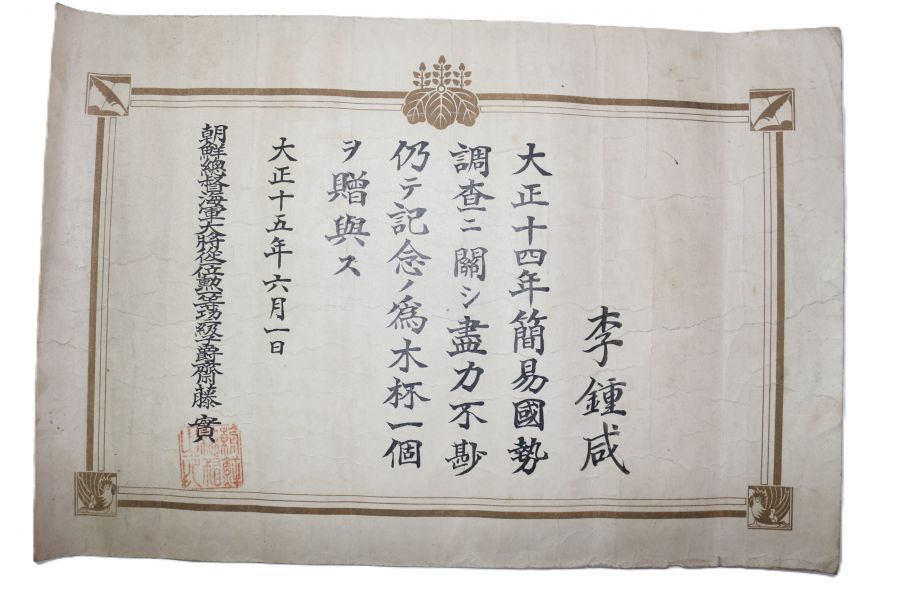 李鍾咸
大正十四年簡易國勢
調査ニ關シ盡力不尠
仍テ記念ノ爲木杯一個
ヲ贈與ス
大正十五年六月一日
朝鮮總督海軍大將從二位勲一等功二級子爵齋藤實
朝鮮總督之印